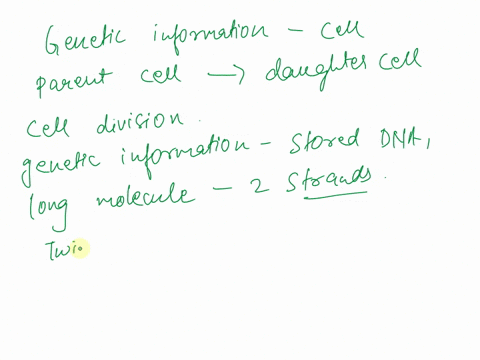 Genetic information - cell
parent cell → daughter cell
cell division.
genetic information - stored DNA,
long molecule - 2 strands.
Twi